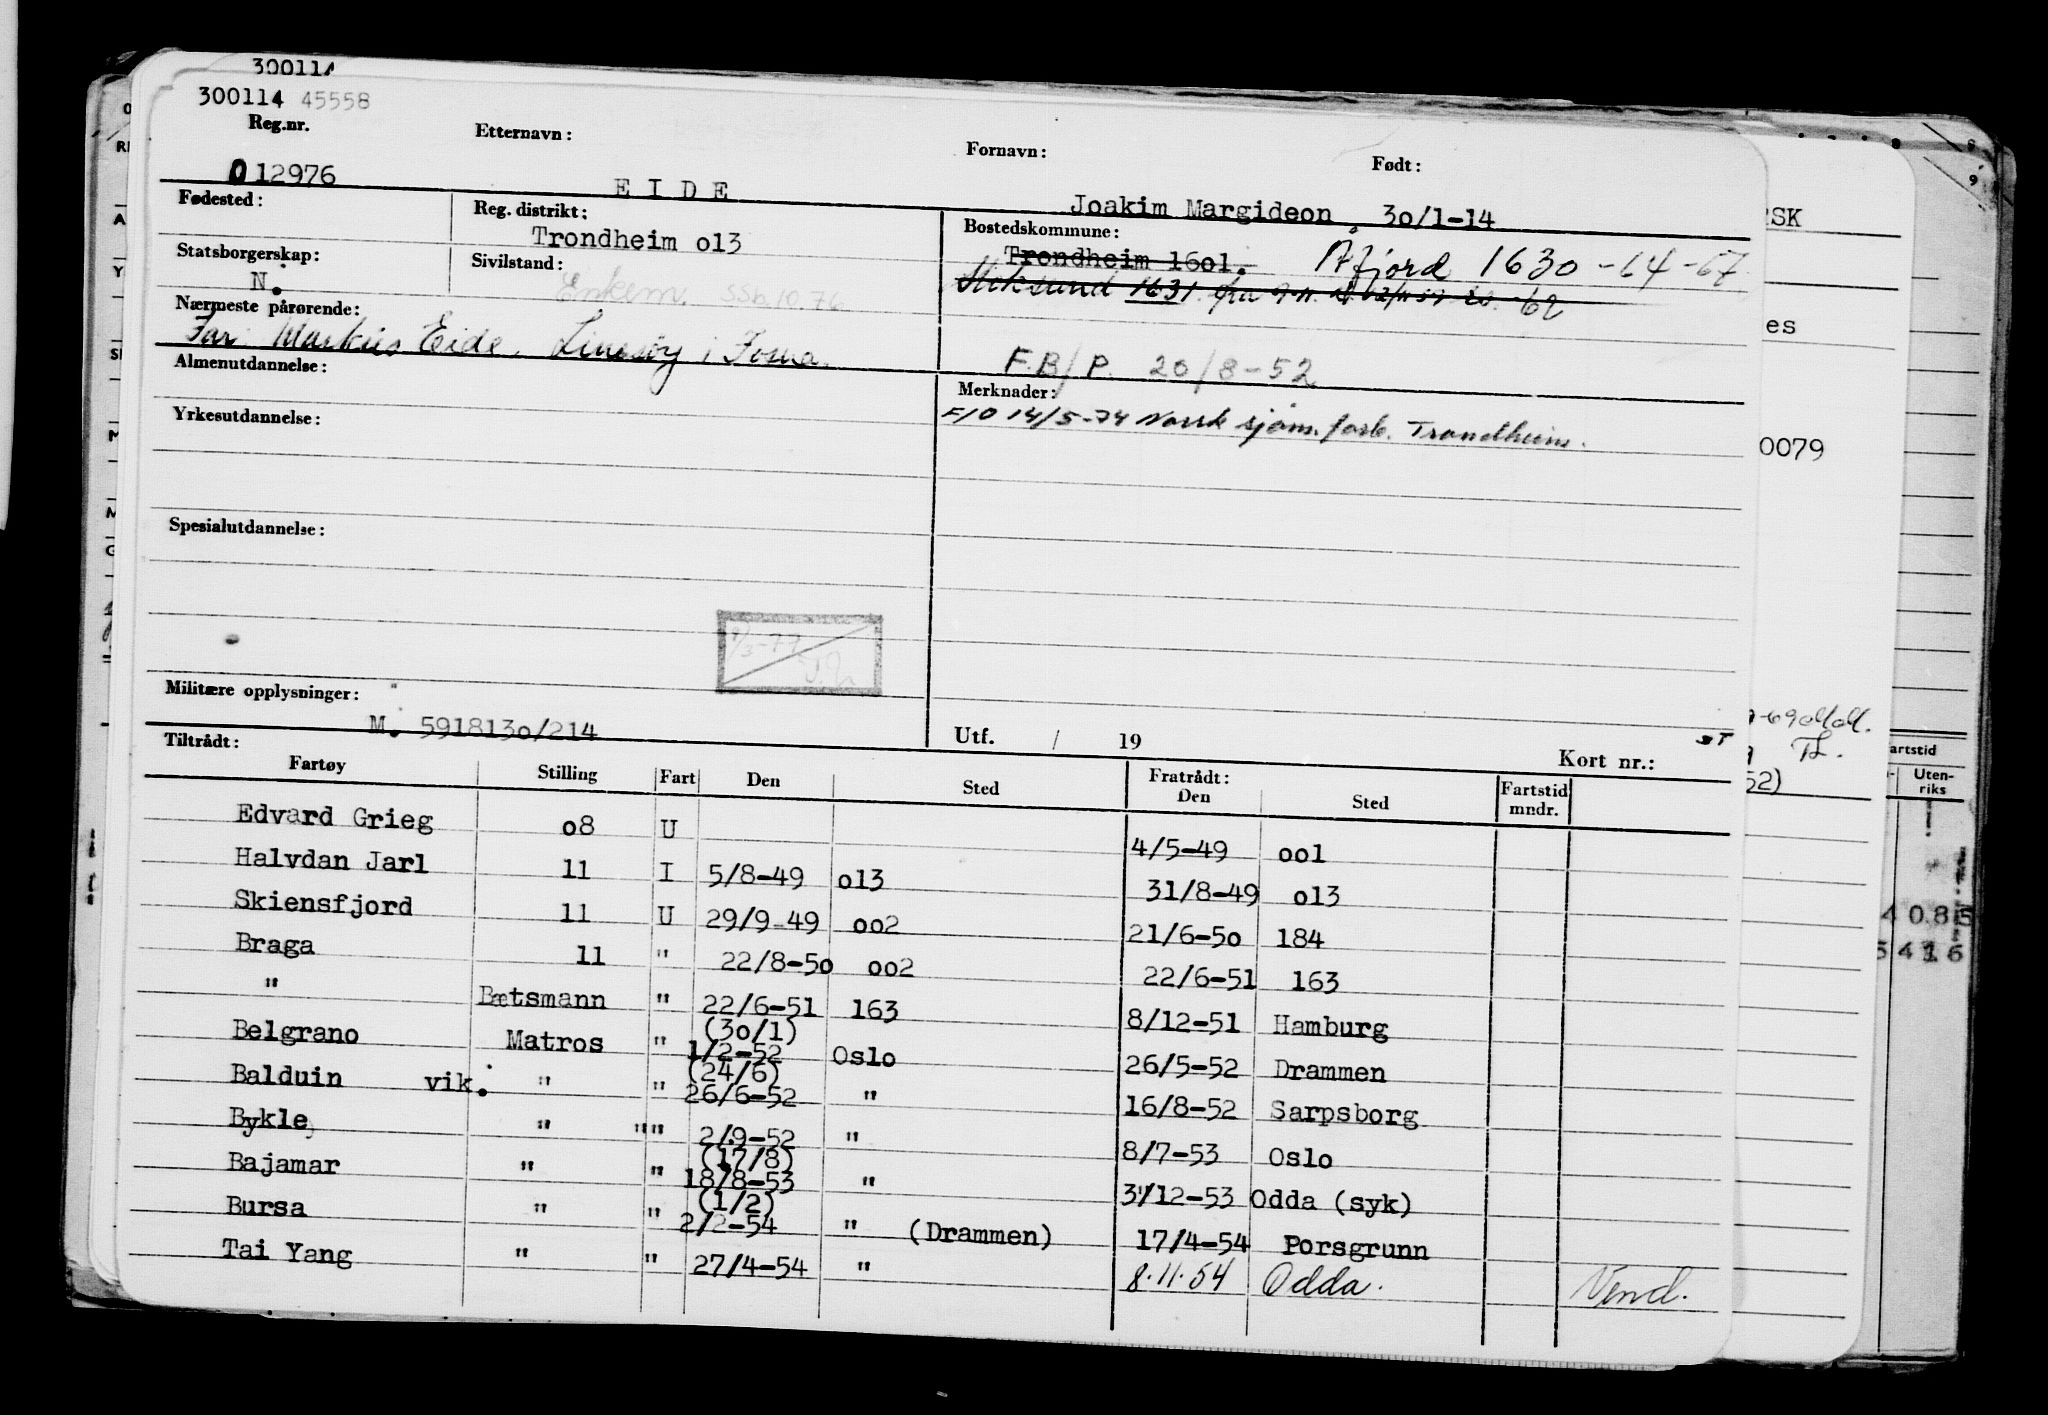 300114
300114 45558
Reg.nr. Etternavn: Fornavn: Født:
012976 EIDE Joakim Margideon 3o/1-14
Fødested: Reg. distrikt: Bostedskommune:
Trondheim o13 Trondheim 16o1. Åfjord 1630 -64 -67
Statsborgerskap: Sivilstand:
N. Enkem. SSb.10.76 Stoksund 1631 fra -62
Nærmeste pårørende:
Far: Markus Eide, Linesøy i Fosna.
F.B/P. 20/8-52
Almenutdannelse: Merknader:
F/O 14/5-74 Norsk sjøm. forb. Trondheim.
Yrkesutdannelse:
Spesialutdannelse:
/3-77
Militære opplysninger:
M. 591813o/214
Utf. / 19 Kort nr.: sT
Tiltrådt: Fratrådt:
Fartøy Stilling Fart Den Sted Den Sted Fartstid mndr.
Edvard Grieg o8 U 4/5-49 oo1
Halvdan Jarl 11 I 5/8-49 o13 31/8-49 o13
Skiensfjord 11 U 29/9-49 oo2 21/6-5o 184
Braga 11 " 22/8-5o oo2 22/6-51 163
" Bætsmann " 22/6-51 163 8/12-51 Hamburg
(3o/1)
Belgrano Matros " 1/2-52 Oslo 26/5-52 Drammen
(24/6)
Balduin vik. " " 26/6-52 " 16/8-52 Sarpsborg
Bykle " "" 2/9-52 " 8/7-53 Oslo
(17/8)
Bajamar " " 18/8-53 " 31/12-53 Odda (syk)
(1/2)
Bursa " " 2/2-54 " (Drammen) 17/4-54 Porsgrunn
Tai Yang " " 27/4-54 " 8.11.54 Odda. Vend.
RSK
es
0079
52)
artstid
Uten-
riks
4085
5416